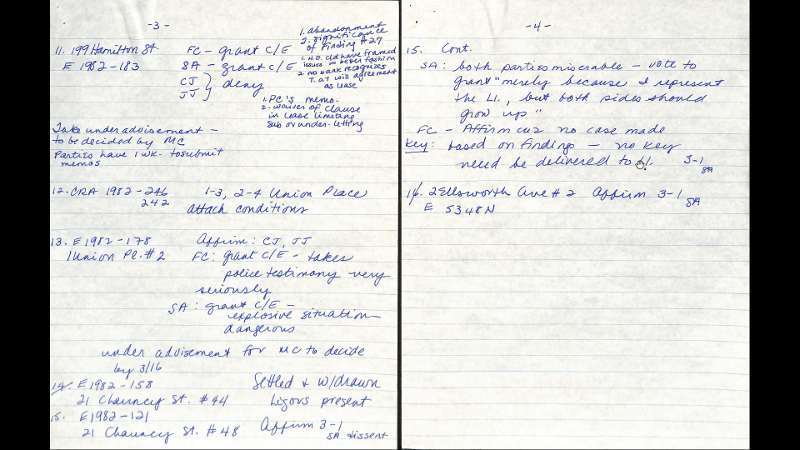 -3-
11. 199 Hamilton St. FC - grant C/E
E 1982-183 SA - grant C/E
CJ } deny
JJ
1. Abandonment
2. Significance
of Finding #27
1. H.O. cld have framed
issues in better fashion
2. no bank recognizes
T. at will agreement
as lease
1. PC's memo.
2. waiver of clause
in lease limiting
sub or under-letting
Take under advisement -
to be decided by MC
Parties have 1 wk. to submit
memos
12. CRA 1982-246 1-3, 2-4 Union Place
242 attach conditions
13. E 1982-178 Affirm: CJ, JJ
1 Union Pl. #2 FC: grant C/E - takes
police testimony very
seriously
SA: grant C/E -
explosive situation
dangerous
under advisement for MC to decide
by 3/16
14. E 1982-158 Settled & W/drawn
21 Chauncy St. #44 Ligors present
15. E 1982-121
21 Chauncy St. #48 Affirm 3-1
SA dissent
-4-
15. Cont.
SA: both parties miserable - vote to
grant "merely because I represent
the LL., but both sides should
grow up"
FC - Affirm cuz no case made
Key: based on findings - no key
need be delivered to 3-1
SA
16. 2 Ellsworth Ave #2 Affirm 3-1
SA
E 5348N